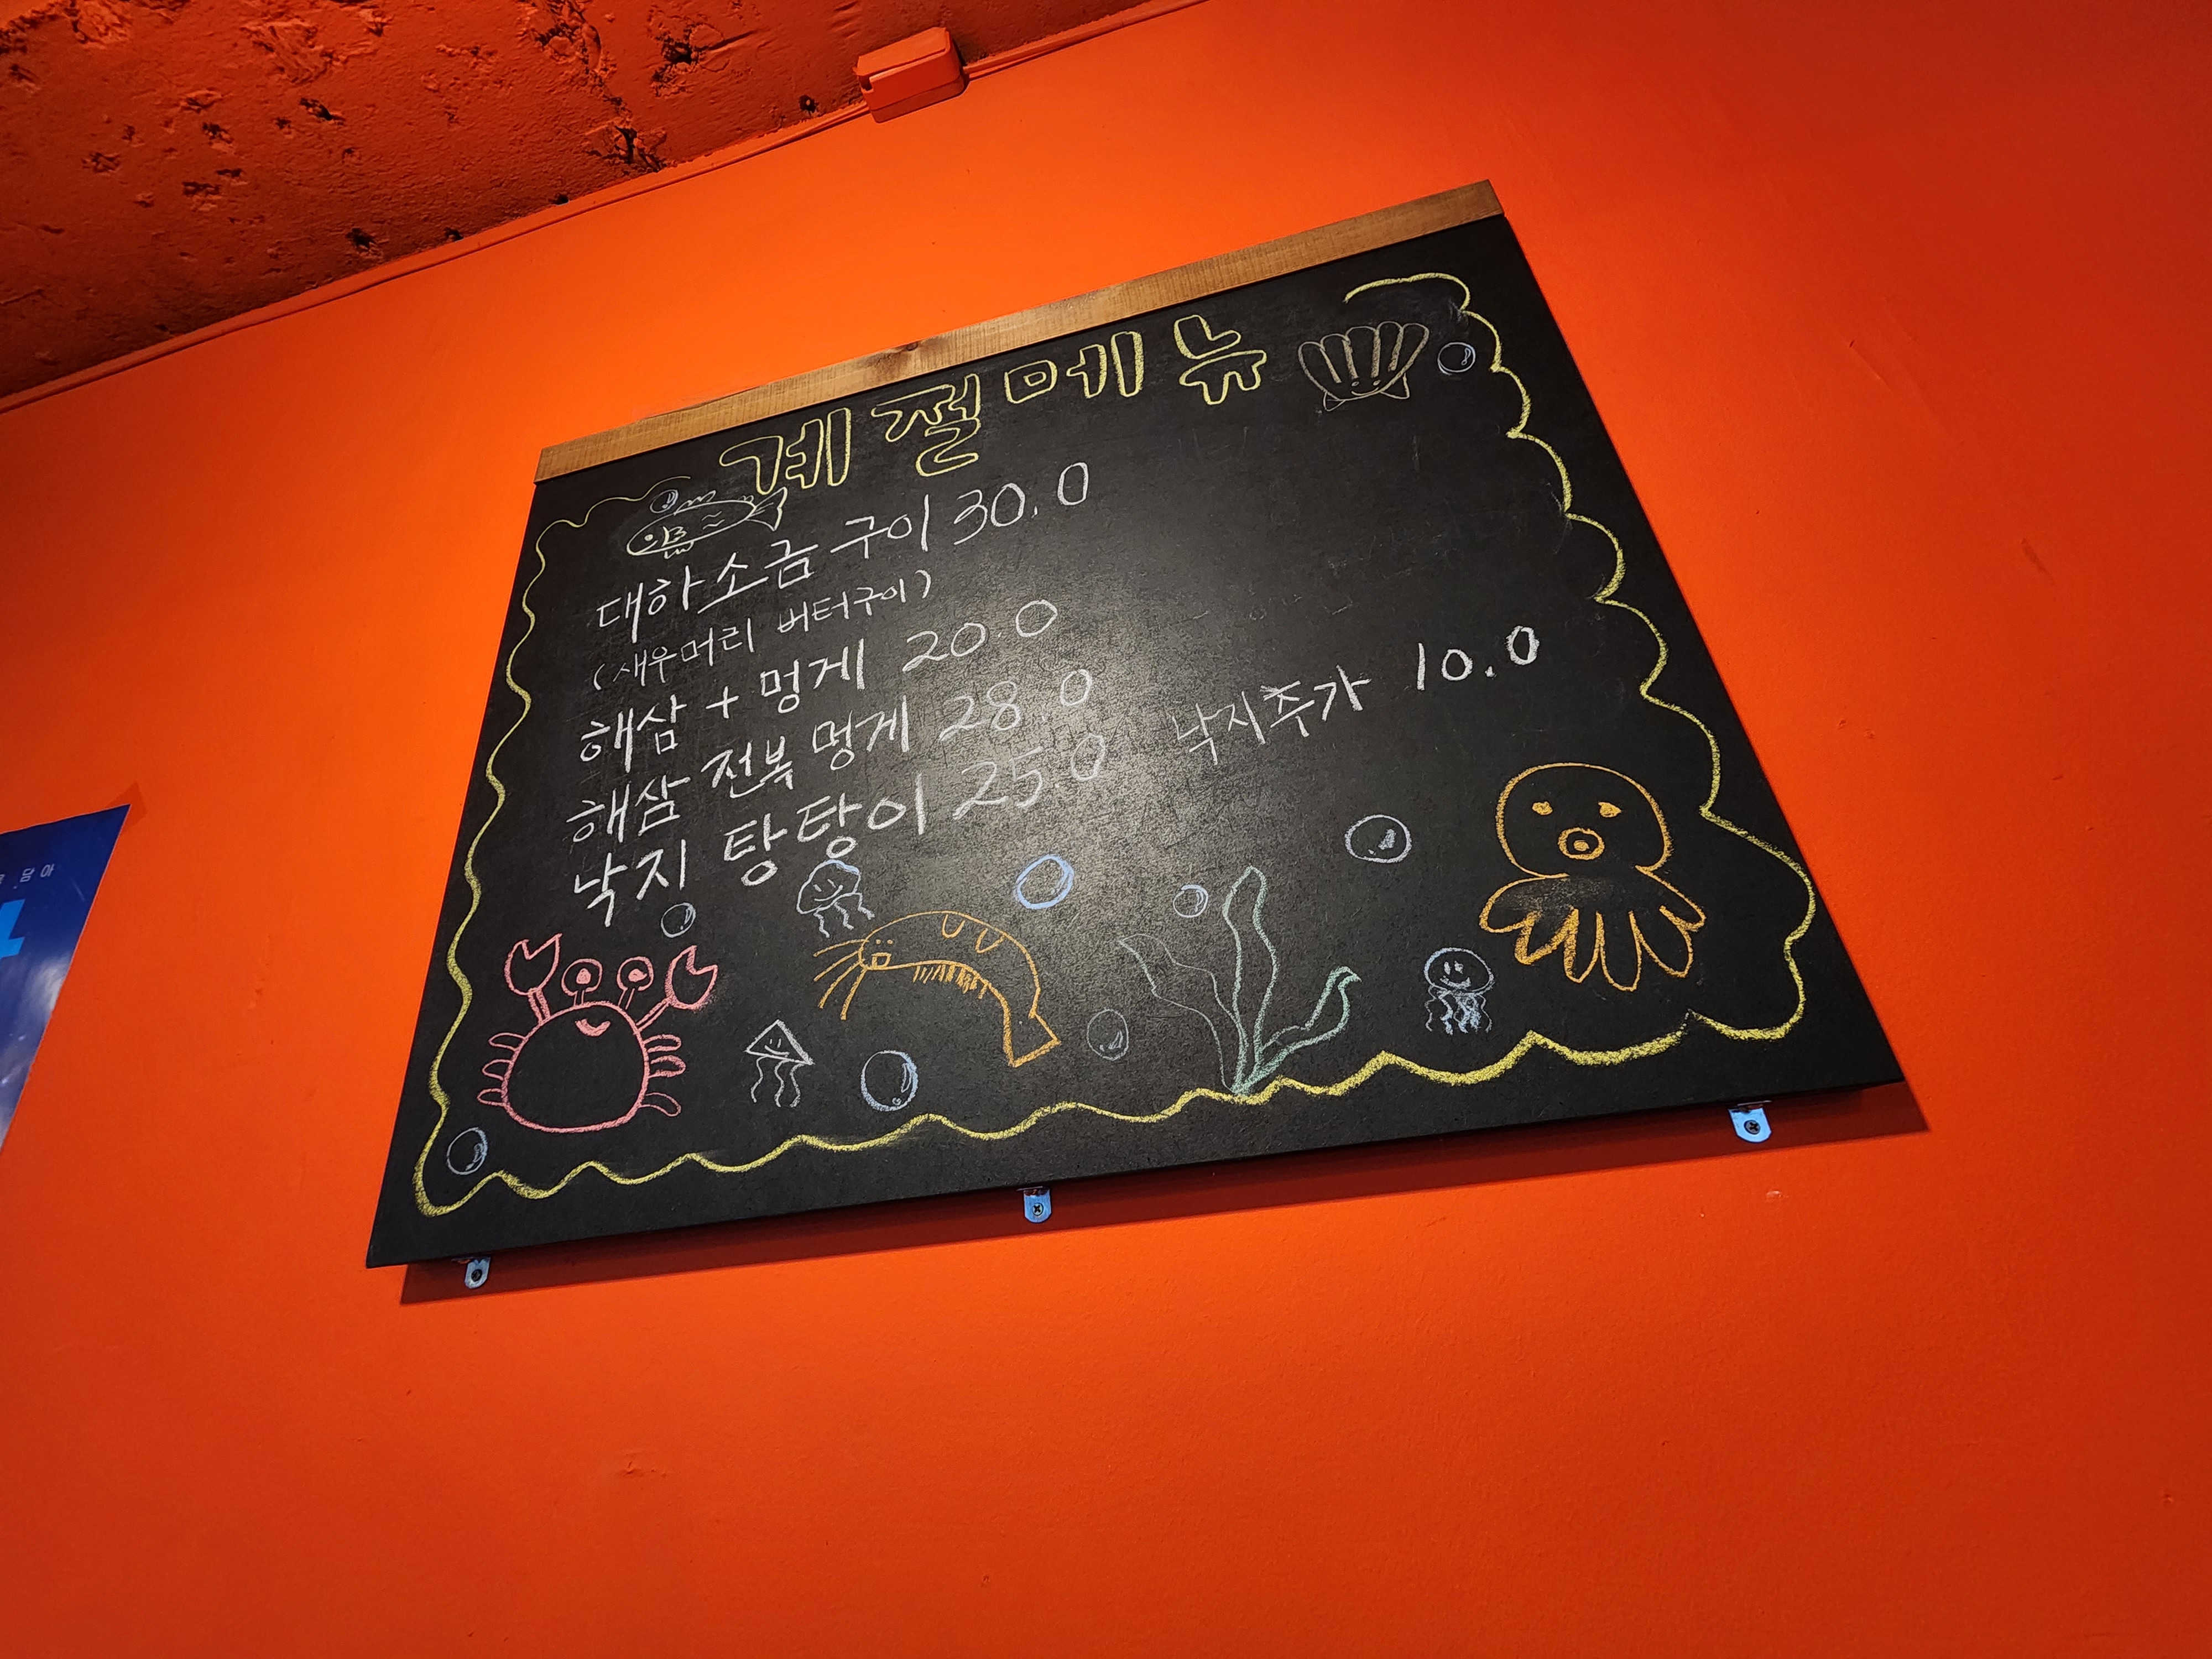 계절메뉴
대하소금구이 30.0
(새우머리 버터구이)
해삼 + 멍게 20.0
해삼 전복 멍게 28.0
낙지 탕탕이 25.0 낙지추가 10.0
담아